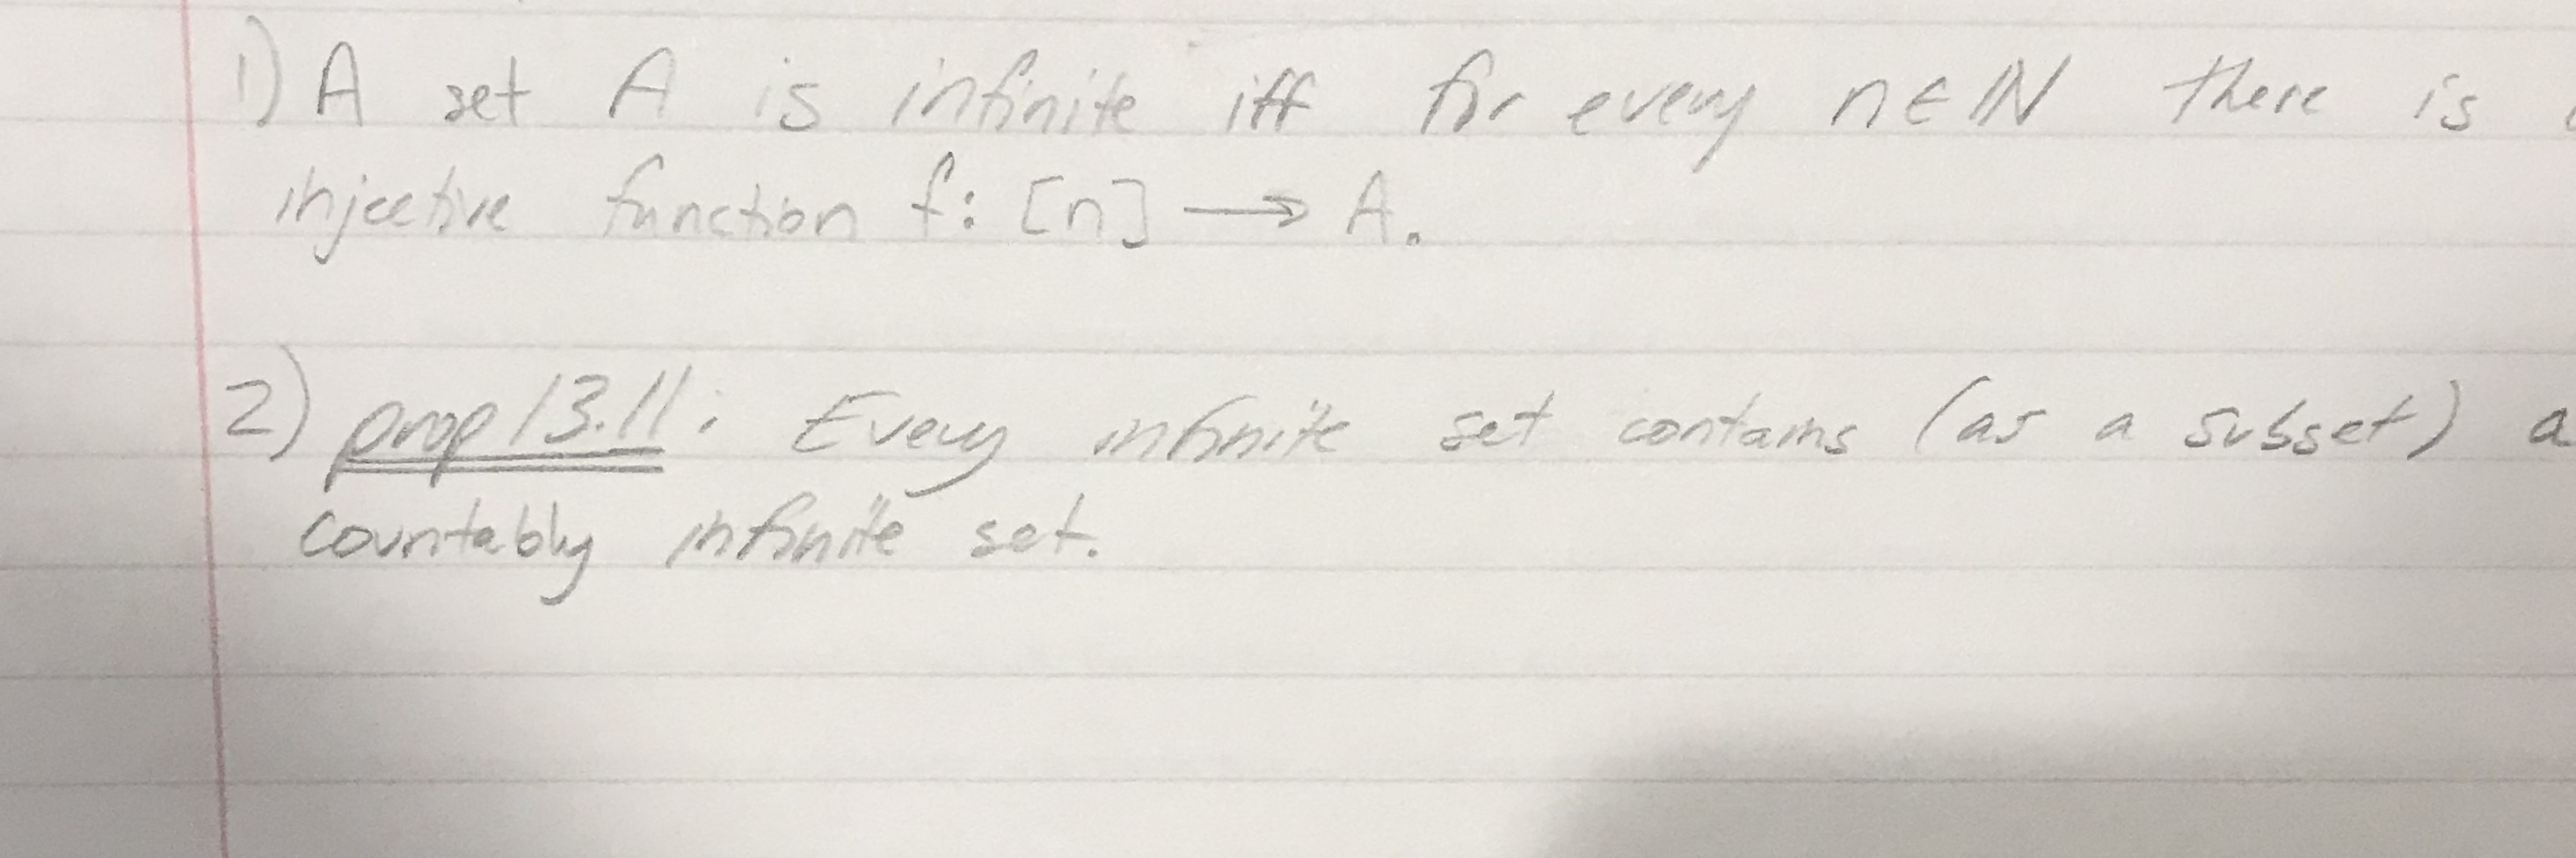 1) A set A is infinite iff for every n ∈ ℕ there is
injective function f: [n] → A.
2) prop 13.11: Every infinite set contains (as a subset) a
countably infinite set.